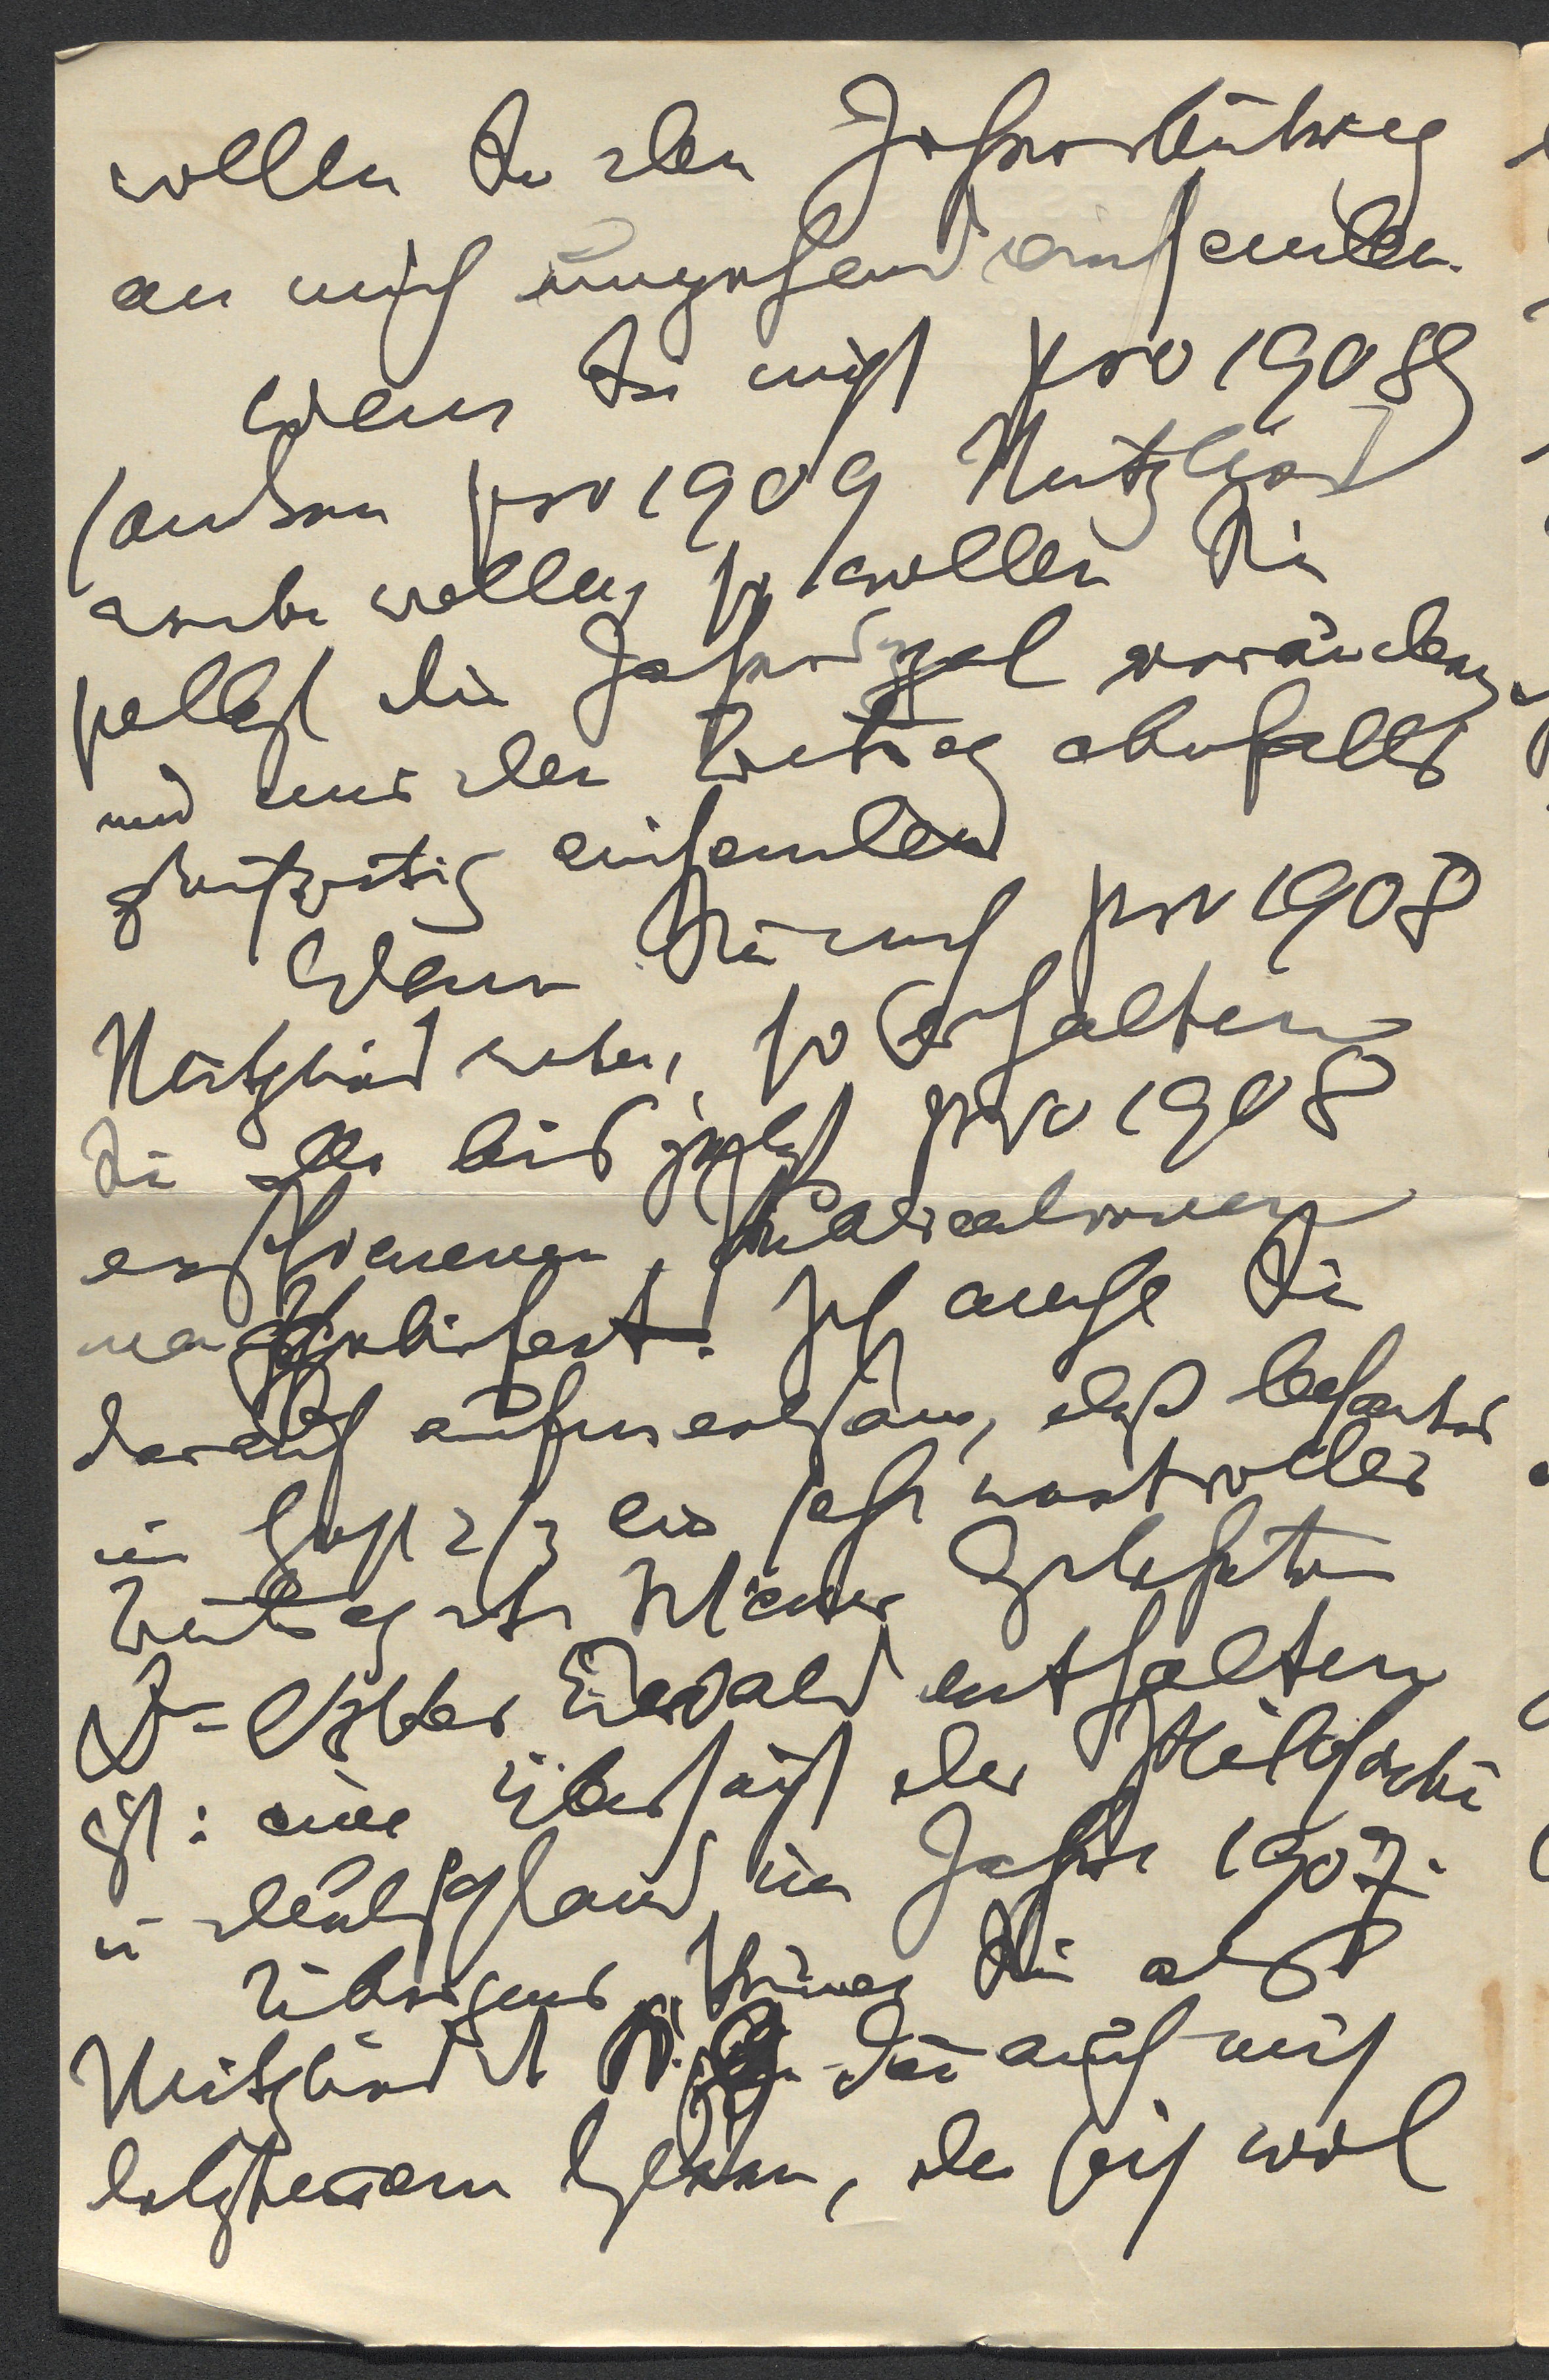 wollen Sie den Jahresbeitrag
an mich umgehend einsenden.
Wenn Sie nicht pro 1908,
sondern pro 1909 Mitglied
werden wollen, so wollen Sie
selbst die Jahreszal verändern,
und uns den Beitrag ebenfalls
gleichzeitig einsenden
Wenn Sie noch pro 1908
Mitglied werden, so erhalten
Sie alle bis jetzt pro 1908
erschienenen Publicationen
nachgeliefert. Ich mache Sie
darauf aufmerksam, daß besonders
im Heft 2/3 ein sehr wertvoller
Beitrag des Wiener Gelehrten
Dr Oskar Ewald enthalten
ist: eine Übersicht der Philosophie
in Deutschland im Jahre 1907.
Übrigens können Sie als
Mitglied darauf auch
letzteren, da sich wol